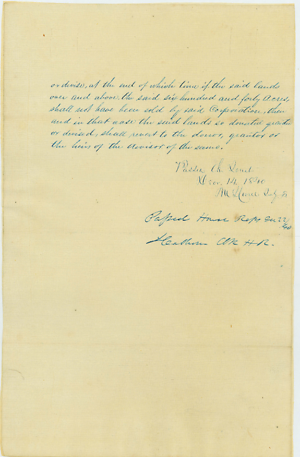 or devise, at the end of which time if the said lands
over and above the said six hundred and forty acres
shall not have been sold by said Corporation, then
and in that case the said lands so donated, granted
or devised, shall revert to the donor, grantor or
the heirs of the devisor of the same.
Passed the Senate
Dec. 14, 1840
Passed House Reps
Clk H. R.